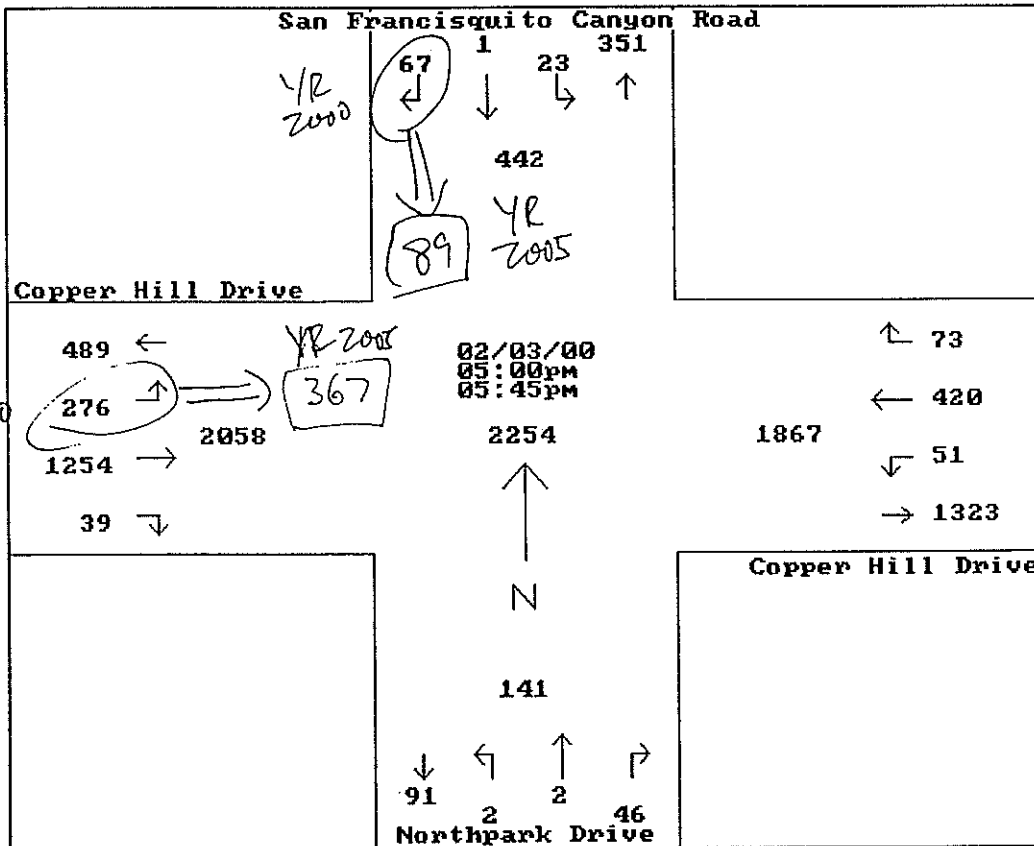 San Francisquito Canyon Road
67 1 23 351
YR
2000
442
89
YR
2005
Copper Hill Drive
489
YR 2005
367
276
2058
1254
39
02/03/00
05:00pm
05:45pm
2254
1867
73
420
51
1323
Copper Hill Drive
N
141
91 2 2 46
Northpark Drive